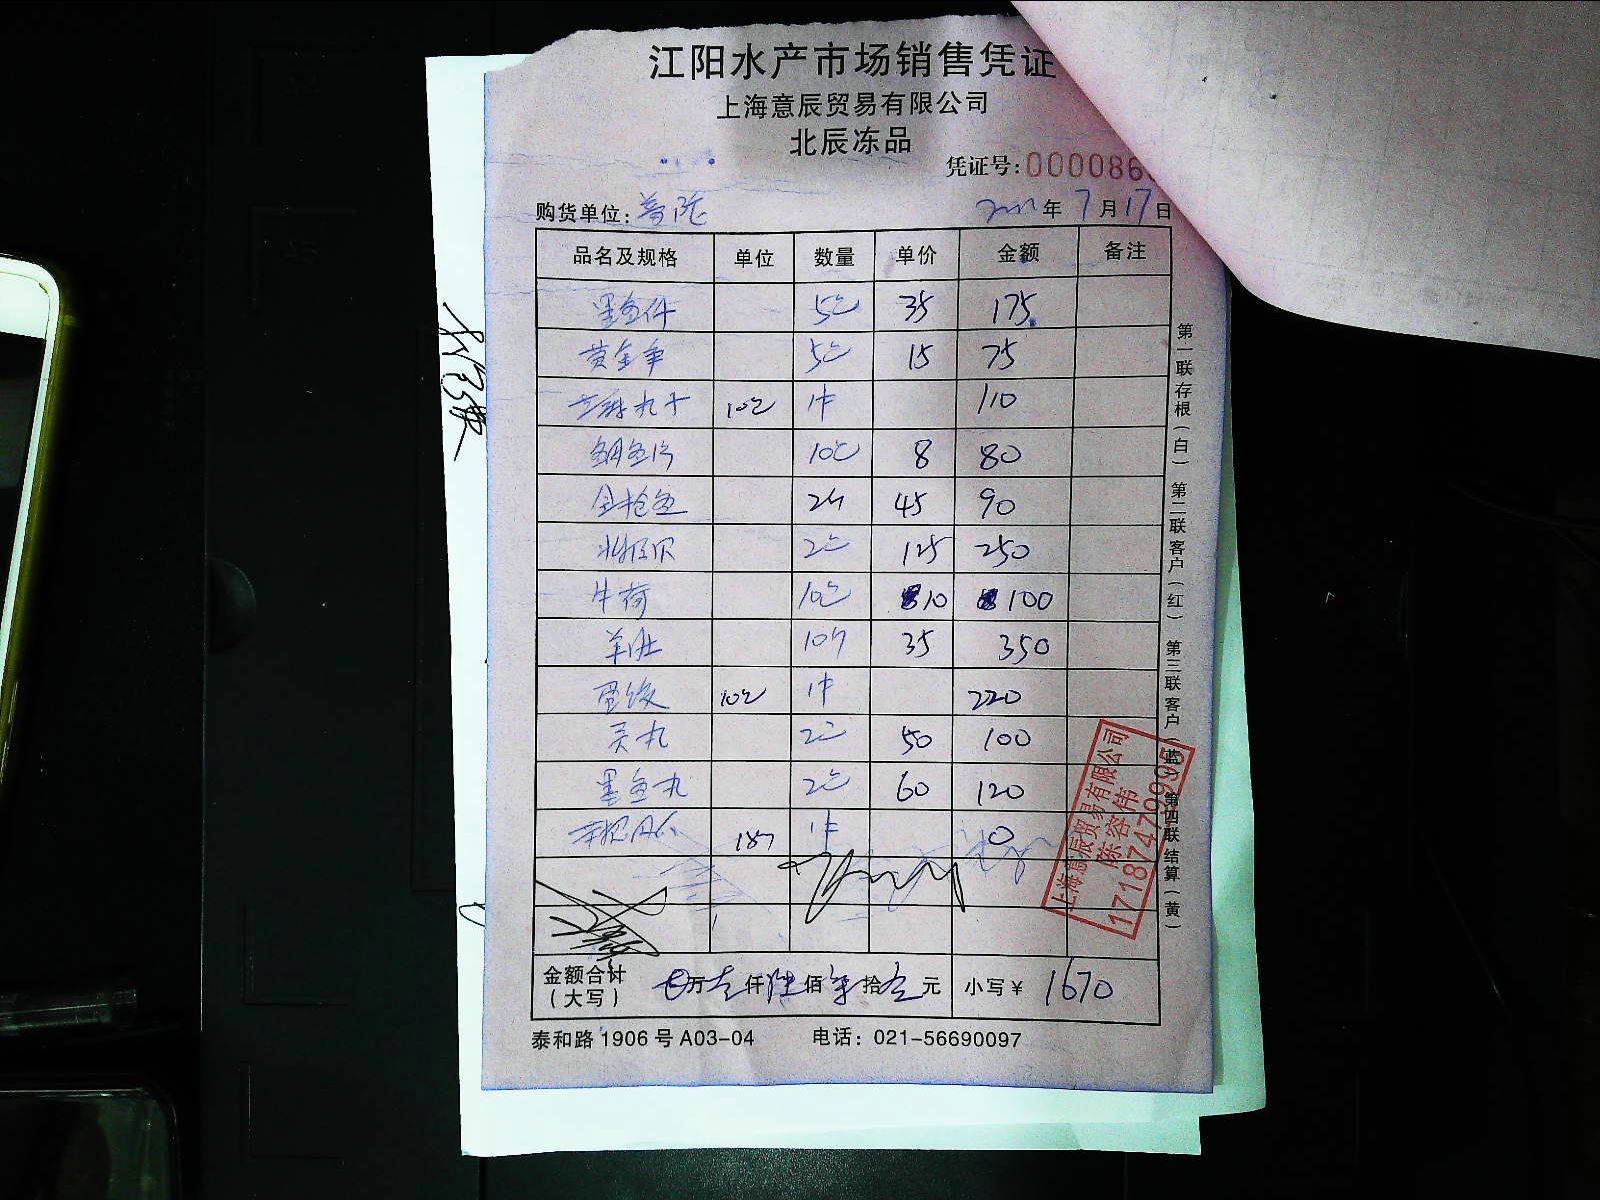 江阳水产市场销售凭证
上海意辰贸易有限公司
北辰冻品
凭证号:000086
购货单位: 普陀 年 7 月 17 日
品名及规格 单位 数量 单价 金额 备注
墨鱼仔 5包 35 175
黄金 5包 15 75
丸子 10包 1件 110
鲷鱼片 10包 8 80
金枪鱼 2 45 90
北极贝 2包 125 250
牛 10包 10 100
羊肚 10 35 350
蛋饺 10包 1件 220
贡丸 2包 50 100
墨鱼丸 2包 60 120
1件 0
金额合计
(大写) 万 仟 陆 佰 拾 元 小写¥ 1670
泰和路1906号A03-04 电话: 021-56690097
第一联存根(白) 第二联客户(红) 第三联客户(蓝) 第四联结算(黄)
上海意辰贸易有限公司
陈容伟
17187479995